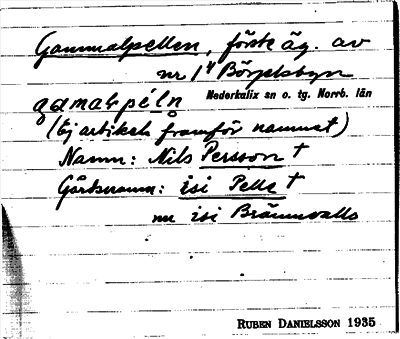 Gammalpellen, förste äg. av
nr 1⁴ Börjelsbyn
Nederkalix sn o. tg. Norrb. län
gamalpéln
(Ej artikeln framför namnet)
Namn: Nils Persson †
Gårdsnamn: isi Pells †
nu isi Brännvalls
RUBEN DANIELSSON 1935